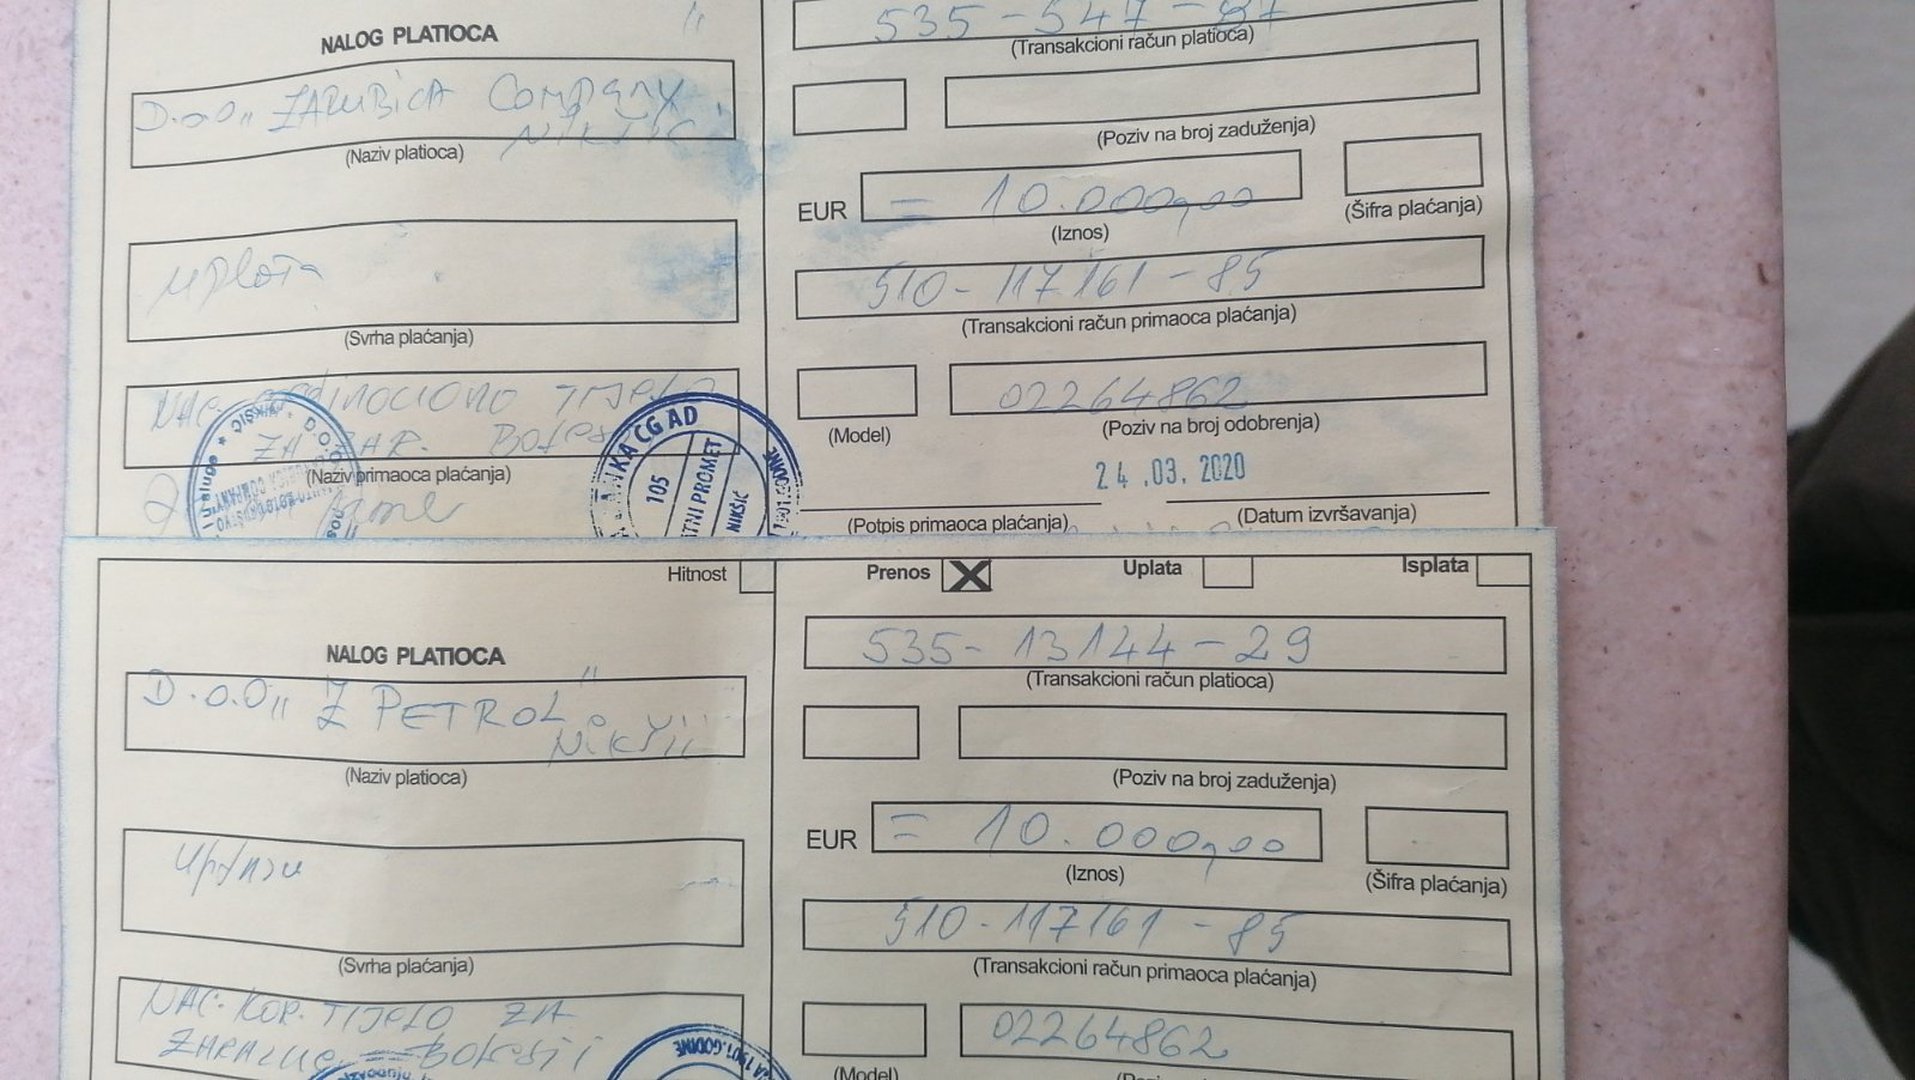 535-547-87
NALOG PLATIOCA
(Transakcioni račun platioca)
D.o.O „ZARUBICA Company"
NIKŠIĆ
(Naziv platioca)
(Poziv na broj zaduženja)
EUR = 10.000,00
(Iznos)
(Šifra plaćanja)
uplata
(Svrha plaćanja)
510-117161-85
(Transakcioni račun primaoca plaćanja)
NAC. TIJELO
ZA ZAR. BOLESTI
(Naziv primaoca plaćanja)
(Model)
02264862
(Poziv na broj odobrenja)
24.03.2020
(Potpis primaoca plaćanja)
(Datum izvršavanja)
NIKŠIĆ
D.O.O.
usluge
COMPANY
BANKA CG AD
105
NIKŠIĆ
1901.GODINE
Hitnost
Prenos X
Uplata
Isplata
NALOG PLATIOCA
535-13144-29
(Transakcioni račun platioca)
D.o.O „Z PETROL"
(Naziv platioca)
(Poziv na broj zaduženja)
EUR = 10.000,00
(Iznos)
(Šifra plaćanja)
(Svrha plaćanja)
510-117161-85
(Transakcioni račun primaoca plaćanja)
NAC. KOR. TIJELO ZA
ZARAZNE BOLESTI
02264862
(Model)
1901.GODINE